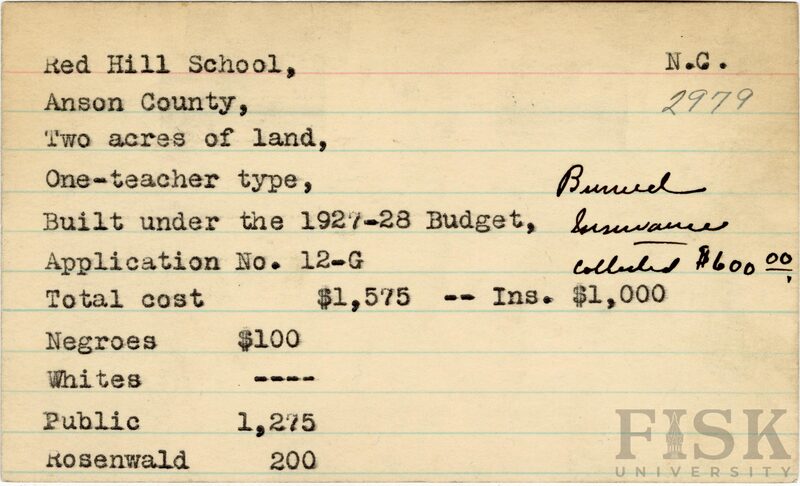 Red Hill School, N.C.
Anson County, 2979
Two acres of land,
One-teacher type, Burned
Built under the 1927-28 Budget, Insurance
Application No. 12-G collected $600 00
Total cost $1,575 -- Ins. $1,000
Negroes $100
Whites ----
Public 1,275
Rosenwald 200
FISK
UNIVERSITY